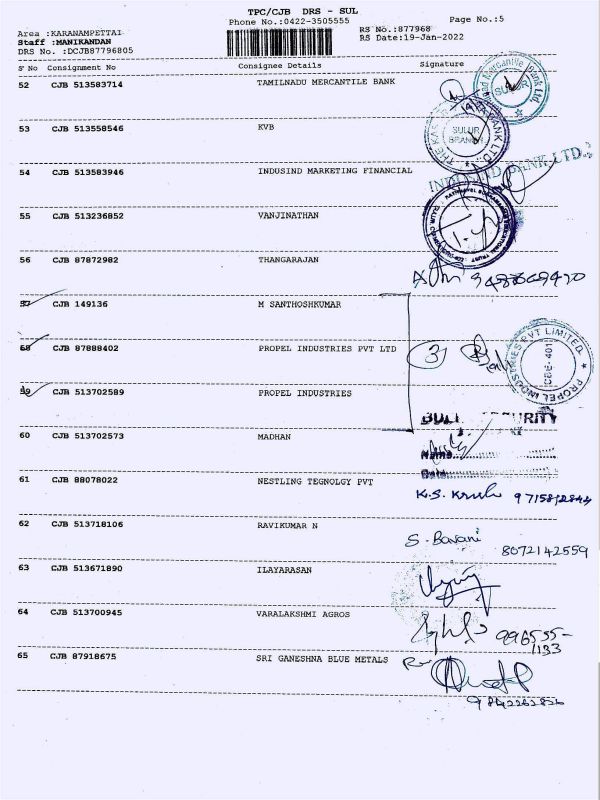 TPC/CJB DRS - SUL
Phone No.:0422-3505555
Page No.:5
Area :KARANAMPETTAI
Staff :MANIKANDAN
DRS No. :DCJB87796805
RS No.:877968
RS Date:19-Jan-2022
S'No Consignment No Consignee Details Signature
52 CJB 513583714 TAMILNADU MERCANTILE BANK
SULUR
53 CJB 513558546 KVB
SULUR
BRANCH
54 CJB 513583946 INDUSIND MARKETING FINANCIAL
INDUSIND BANK LTD.
55 CJB 513236852 VANJINATHAN
56 CJB 87872982 THANGARAJAN
57 CJB 149136 M SANTHOSHKUMAR
58 CJB 87888402 PROPEL INDUSTRIES PVT LTD
3
PROPEL INDUSTRIES PVT LIMITED
CBE-401
59 CJB 513702589 PROPEL INDUSTRIES
60 CJB 513702573 MADHAN
Name
Date
61 CJB 88078022 NESTLING TEGNOLGY PVT
62 CJB 513718106 RAVIKUMAR N
S. Bavani
8072142559
63 CJB 513671890 ILAYARASAN
64 CJB 513700945 VARALAKSHMI AGROS
996535-
1133
65 CJB 87918675 SRI GANESHNA BLUE METALS